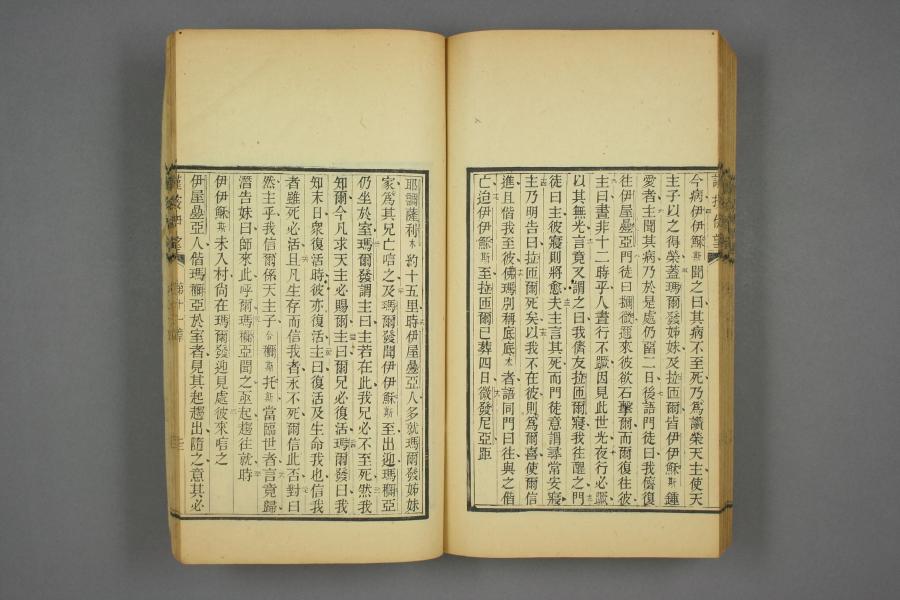 今病伊伊穌斯聞之曰其病不至死乃爲讚榮天主使天
主子以之得榮蓋瑪爾發姊妹及拉匝爾皆伊伊穌斯鍾
愛者主聞其病乃於是處仍畱二日後語門徒曰我儕復
往伊屋疊亞門徒曰師彼欲石擊爾而爾復往彼
主曰晝非十二時乎人晝行不蹶因見此世光夜行必蹶
以其無光言竟又謂之曰我儕友拉匝爾寢我往醒之門
徒曰主彼寢則將愈夫主言其死而門徒意謂尋常安寢
主乃明告曰拉匝爾死矣以我不在彼則爲爾喜使爾信
進且偕我至彼佛瑪別稱底底木者語同門曰往與之偕
亡迨伊伊穌斯至拉匝爾已葬四日微發尼亞距
耶嚕薩利木約十五里時伊屋疊亞人多就瑪爾發姊妹
家爲其兄亡唁之及瑪爾發聞伊伊穌斯至出迎瑪穪亞
仍坐於室瑪爾發謂主曰主若在此我兄必不至死然我
知爾今凡求天主必賜爾主曰爾兄必復活瑪爾發曰我
知末日衆復活時彼亦復活主曰復活及生命我也信我
者雖死必活且凡生存而信我者永不死爾信此否對曰
然主乎我信爾係天主子合穪斯托斯當臨世者言竟歸
潛告妹曰師來此呼爾瑪穪亞聞之亟起趨往就時
伊伊穌斯未入村尚在瑪爾發迎見處彼來唁之
伊屋疊亞人偕瑪穪亞於室者見其起趨出隨之意其必
第十一